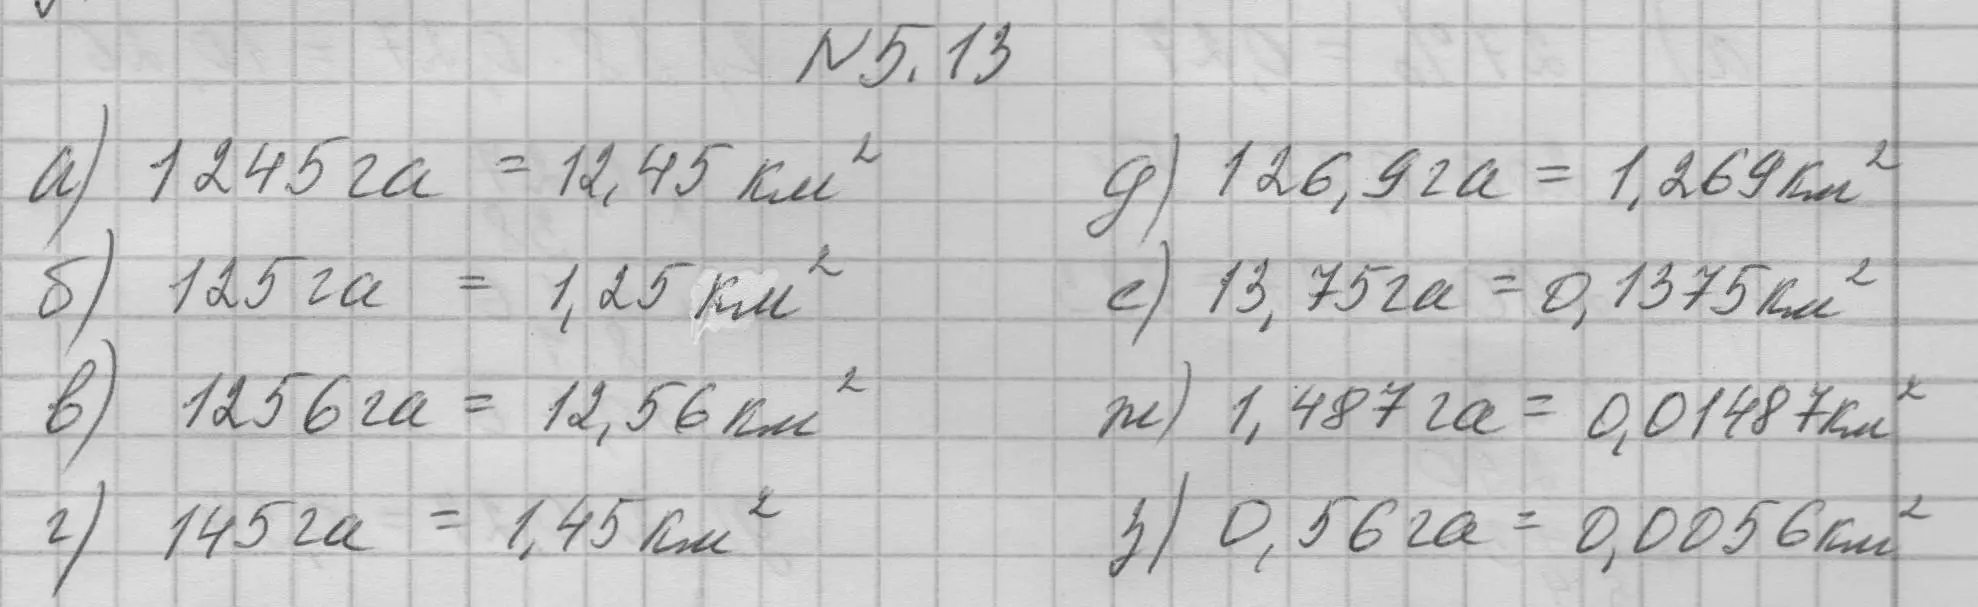 N 5.13
а) 1245 га = 12,45 км²
б) 125 га = 1,25 км²
в) 1256 га = 12,56 км²
г) 145 га = 1,45 км²
д) 126,9 га = 1,269 км²
е) 13,75 га = 0,1375 км²
ж) 1,487 га = 0,01487 км²
з) 0,56 га = 0,0056 км²